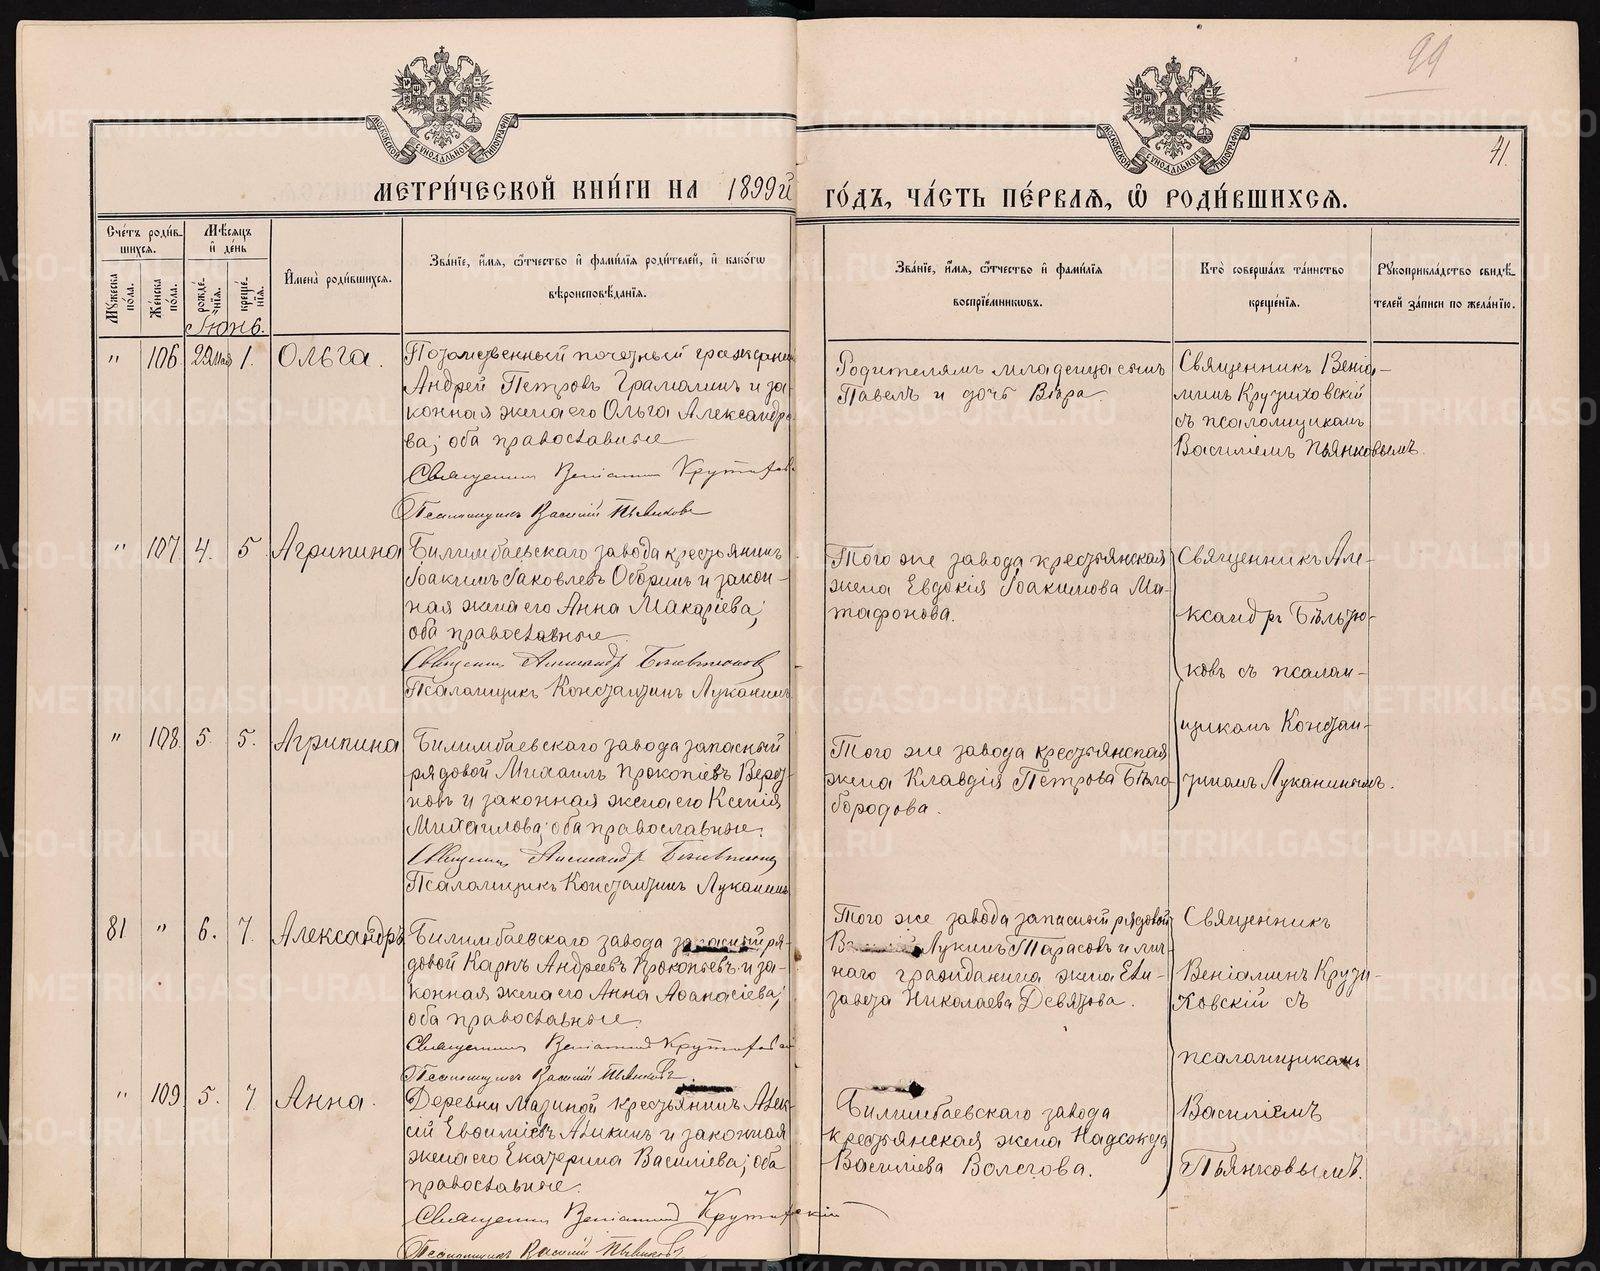 99
41.
МЕТРИ́ЧЕСКОЙ КНИ́ГИ НА 1899й ГО́ДЪ, ЧА́СТЬ ПЕ́РВАѦ, Ѡ҆ РОДИ́ВШИХСѦ.
Сче́тъ роди́в-
шихся.
Мѣ́сѧцъ
и҆ де́нь
Му́жеска
по́ла.
Же́нска
по́ла.
рожде́-
нїѧ.
креще́-
нїѧ.
И҆мена̀ роди́вшихсѧ.
Зва́нїе, и҆́мѧ, ѻ҆́тчество и҆ фами́лїѧ роди́телей, и҆ како́гѡ
вѣроисповѣ́данїѧ.
Зва́нїе, и҆́мѧ, ѻ҆́тчество и҆ фами́лїѧ
воспрїе́мникѡвъ.
Кто̀ соверша́лъ та́инство
креще́нїѧ.
Рꙋкоприкла́дство свидѣ́-
телей за́писи по жела́нїю.
Іюнь.
" 106. 29 мая 1. Ольга.
Потомственный почетный гражданин
Андрей Петровъ Грамалинъ и за-
конная жена его Ольга Александро-
ва; оба православные
Священникъ Веніаминъ Крутиховс
Псаломщикъ Василій Пьянковъ
Родителямъ младенца сынъ
Павелъ и дочь Вѣра
Священникъ Веніа-
минъ Крутиховскій
съ псаломщикомъ
Василіемъ Пьянковымъ.
" 107. 4. 5 Агрипина
Билимбаевскаго завода крестьянинъ
Іоакимъ Іаковлевъ Оборинъ и закон-
ная жена его Анна Макаріева;
оба православные
Священникъ Александръ
Псаломщикъ Константинъ Луканинъ
Того же завода крестьянская
жена Евдокія Іоакимова Ма-
тафонова.
Священникъ Але-
ксандръ Бѣльтю-
ковъ съ псалом-
щикомъ Констан-
тиномъ Луканинымъ.
" 108. 5. 5. Агрипина
Билимбаевскаго завода запасный
рядовой Михаилъ Прокопіевъ Верет-
новъ и законная жена его Ксенія
Михаилова; оба православные.
Священникъ Александръ
Псаломщикъ Константинъ Луканинъ
Того же завода крестьянская
жена Клавдія Петрова Бѣло-
бородова.
81 " 6. 7. Александръ
Билимбаевскаго завода запасный ря-
довой Карпъ Андреевъ Прокопьевъ и за-
конная жена его Анна Аѳанасіева;
оба православные.
Священникъ Веніаминъ Крутиховскій
Псаломщикъ Василій Пьянковъ.
Того же завода запасный рядовой
Лукинъ Тарасовъ и лич-
наго гражданина жена Ели-
завета Николаева Девятова.
Священникъ
Веніаминъ Крути-
ховскій съ
псаломщикомъ
Василіемъ
Пьянковымъ.
" 109. 5. 7. Анна.
Деревни Мазиной крестьянинъ Алек-
сій Евѳиміевъ Аликинъ и законная
жена его Екатерина Василіева; оба
православные.
Священникъ Веніаминъ Крутиховскій
Псаломщикъ Василій Пьянковъ
Билимбаевскаго завода
крестьянская жена Надежда
Василіева Волегова.
METRIKI.GASO-URAL.RU